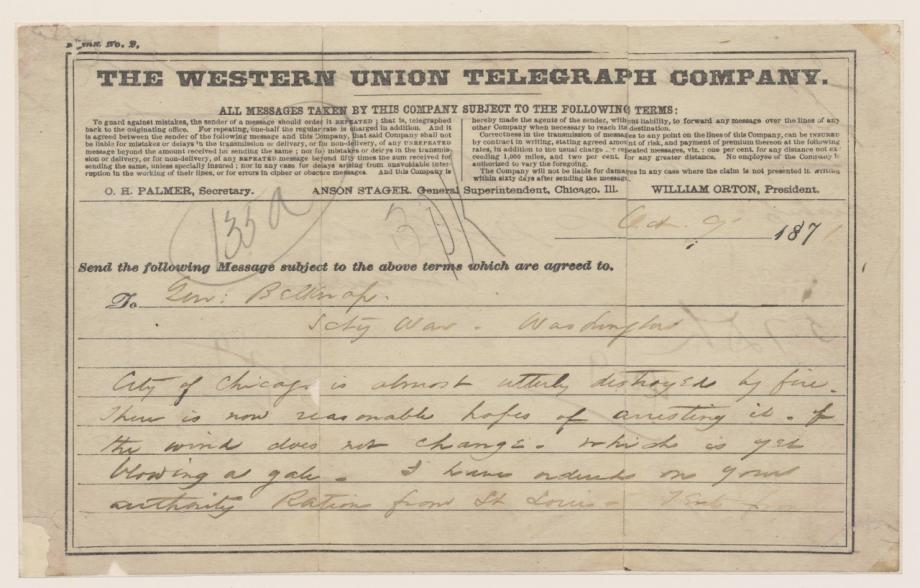 BLANK No. 2.
THE WESTERN UNION TELEGRAPH COMPANY.
ALL MESSAGES TAKEN BY THIS COMPANY SUBJECT TO THE FOLLOWING TERMS:
To guard against mistakes, the sender of a message should order it REPEATED; that is, telegraphed
back to the originating office. For repeating, one-half the regular rate is charged in addition. And it
is agreed between the sender of the following message and this Company, that said Company shall not
be liable for mistakes or delays in the transmission or delivery, or for non-delivery, of any UNREPEATED
message beyond the amount received for sending the same; nor for mistakes or delays in the transmis-
sion or delivery, or for non-delivery, of any REPEATED message beyond fifty times the sum received for
sending the same, unless specially insured; nor in any case for delays arising from unavoidable inter-
ruption in the working of their lines, or for errors in cipher or obscure messages. And this Company is
hereby made the agent of the sender, without liability, to forward any message over the lines of any
other Company when necessary to reach its destination.
Correctness in the transmission of messages to any point on the lines of this Company, can be INSURED
by contract in writing, stating agreed amount of risk, and payment of premium thereon at the following
rates, in addition to the usual charge for repeated messages, viz.: one per cent. for any distance not ex-
ceeding 1,000 miles, and two per cent. for any greater distance. No employee of the Company is
authorized to vary the foregoing.
The Company will not be liable for damages in any case where the claim is not presented in writing
within sixty days after sending the message.
O. H. PALMER, Secretary. ANSON STAGER, General Superintendent, Chicago, Ill. WILLIAM ORTON, President.
135 a
Oct. 9 1871
Send the following Message subject to the above terms which are agreed to.
To Gen: Belknap.
Scty War - Washington
City of Chicago is almost utterly destroyed by fire.
There is now reasonable hopes of arresting it - if
the wind does not change - which is yet
blowing a gale - I have ordered on your
authority Rations from St Louis - Tents from